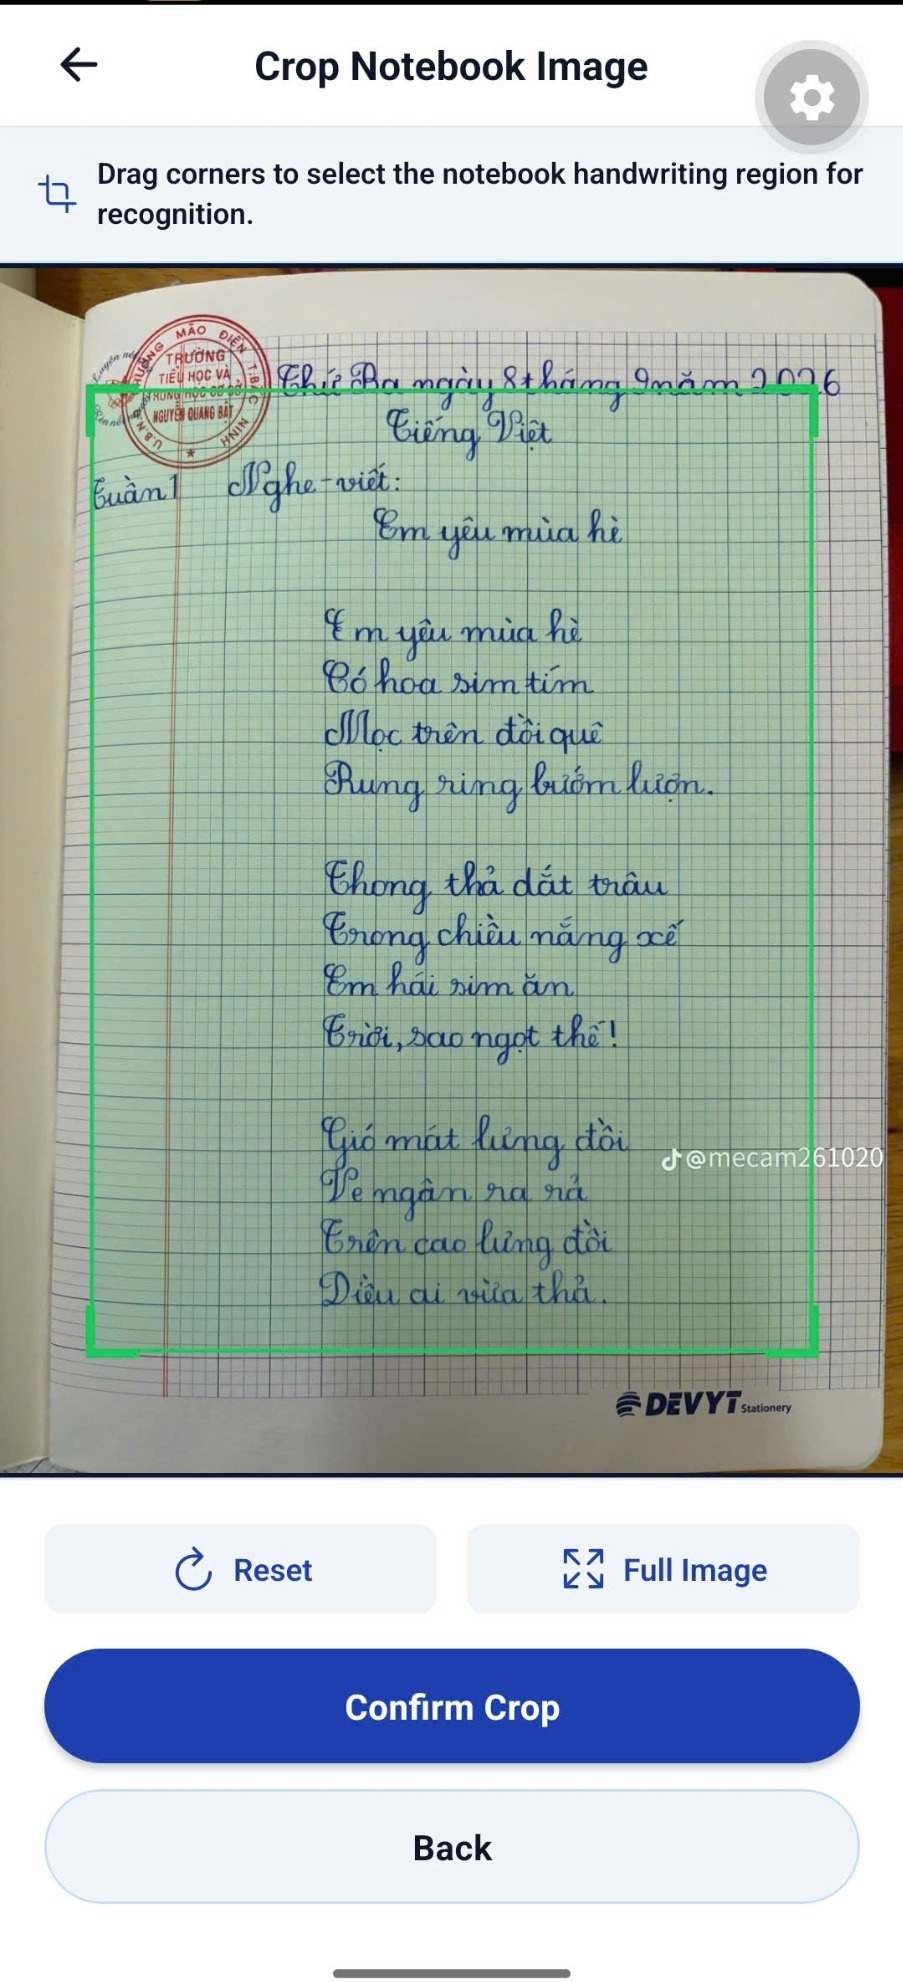 Crop Notebook Image
Drag corners to select the notebook handwriting region for
recognition.
MÃO ĐIỀN
TRƯỜNG
TIỂU HỌC VÀ
TRUNG HỌC CƠ SỞ
NGUYỄN QUANG BẬT
T.BẮC NINH
U.B.N.D
Thứ Ba ngày 8 tháng 9 năm 2026
Tiếng Việt
Tuần 1 Nghe-viết:
Em yêu mùa hè
Em yêu mùa hè
Có hoa sim tím
Mọc trên đồi quê
Rung ring bướm lượn.
Thong thả dắt trâu
Trong chiều nắng xế
Em hái sim ăn
Trời, sao ngọt thế!
Gió mát lưng đồi
@mecam261020
Ve ngân ra rả
Trên cao lưng đồi
Diều ai vừa thả.
DEVYT Stationery
Reset
Full Image
Confirm Crop
Back